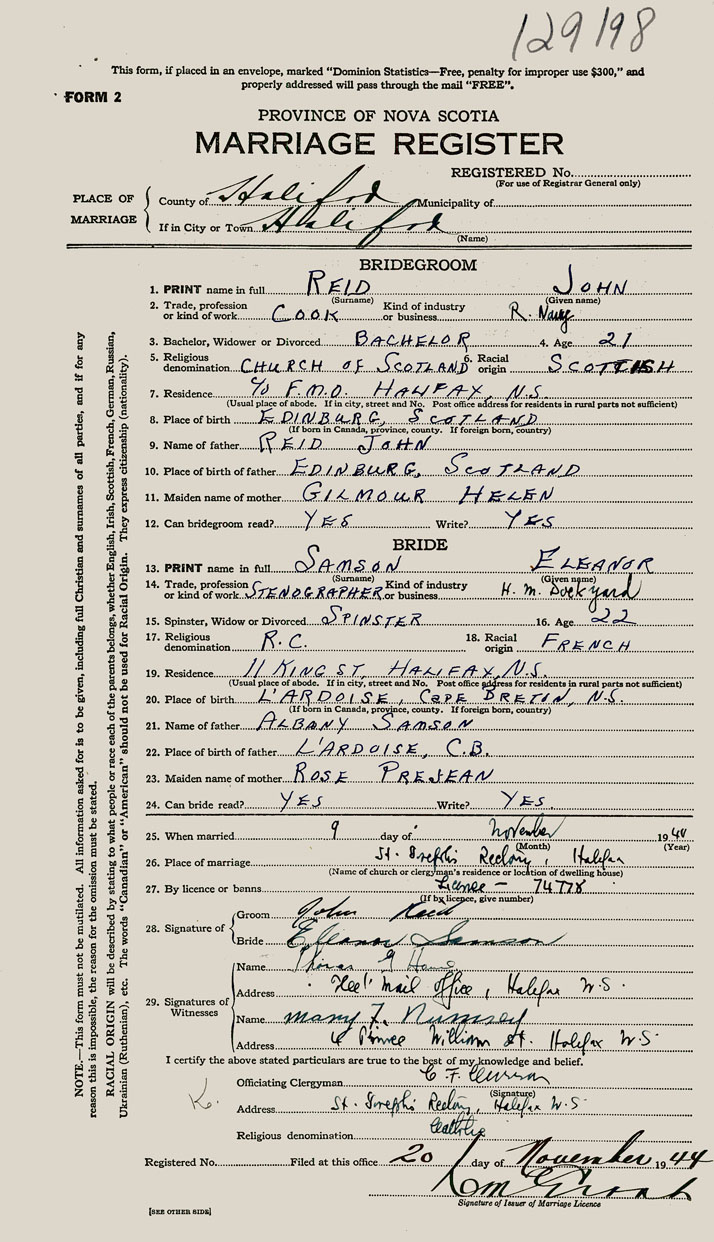 129198
This form, if placed in an envelope, marked "Dominion Statistics—Free, penalty for improper use $300," and
properly addressed will pass through the mail "FREE".
FORM 2
PROVINCE OF NOVA SCOTIA
MARRIAGE REGISTER
REGISTERED No.
(For use of Registrar General only)
PLACE OF MARRIAGE
County of Halifax Municipality of
If in City or Town Halifax
(Name)
BRIDEGROOM
1. PRINT name in full REID JOHN
(Surname) (Given name)
2. Trade, profession or kind of work COOK Kind of industry or business R. Navy
3. Bachelor, Widower or Divorced BACHELOR 4. Age 21
5. Religious denomination CHURCH OF SCOTLAND 6. Racial origin SCOTTISH
7. Residence c/o F.M.O. HALIFAX, N.S.
(Usual place of abode. If in city, street and No. Post office address for residents in rural parts not sufficient)
8. Place of birth EDINBURG, SCOTLAND
(If born in Canada, province, county. If foreign born, country)
9. Name of father REID JOHN
10. Place of birth of father EDINBURG, SCOTLAND
11. Maiden name of mother GILMOUR HELEN
12. Can bridegroom read? YES Write? YES
BRIDE
13. PRINT name in full SAMSON ELEANOR
(Surname) (Given name)
14. Trade, profession or kind of work STENOGRAPHER Kind of industry or business H. M. Dockyard
15. Spinster, Widow or Divorced SPINSTER 16. Age 22
17. Religious denomination R.C. 18. Racial origin FRENCH
19. Residence 11 KING ST, HALIFAX, N.S.
(Usual place of abode. If in city, street and No. Post office address for residents in rural parts not sufficient)
20. Place of birth L'ARDOISE, CAPE BRETIN, N.S.
(If born in Canada, province, county. If foreign born, country)
21. Name of father ALBANY SAMSON
22. Place of birth of father L'ARDOISE, C.B.
23. Maiden name of mother ROSE PREJEAN
24. Can bride read? YES Write? YES.
25. When married 9 day of November 1944
(Month) (Year)
26. Place of marriage St. Joseph's Rectory, Halifax
(Name of church or clergyman's residence or location of dwelling house)
27. By licence or banns License - 74778
(If by licence, give number)
28. Signature of
Groom John Reid
Bride Eleanor Samson
29. Signatures of Witnesses
Name Thomas G
Address Fleet Mail Office, Halifax N.S.
Name Mary F. Rumsey
Address 6 Prince William St. Halifax N.S.
I certify the above stated particulars are true to the best of my knowledge and belief.
Officiating Clergyman C. F. Curran
(Signature)
K.
Address St. Joseph's Rectory, Halifax N.S.
Religious denomination Catholic
Registered No. Filed at this office 20 day of November 1944
Signature of Issuer of Marriage Licence
[SEE OTHER SIDE]
NOTE.—This form must not be mutilated. All information asked for is to be given, including full Christian and surnames of all parties, and if for any
reason this is impossible, the reason for the omission must be stated.
RACIAL ORIGIN will be described by stating to what people or race each of the parents belongs, whether English, Irish, Scottish, French, German, Russian,
Ukrainian (Ruthenian), etc. The words "Canadian" or "American" should not be used for Racial Origin. They express citizenship (nationality).